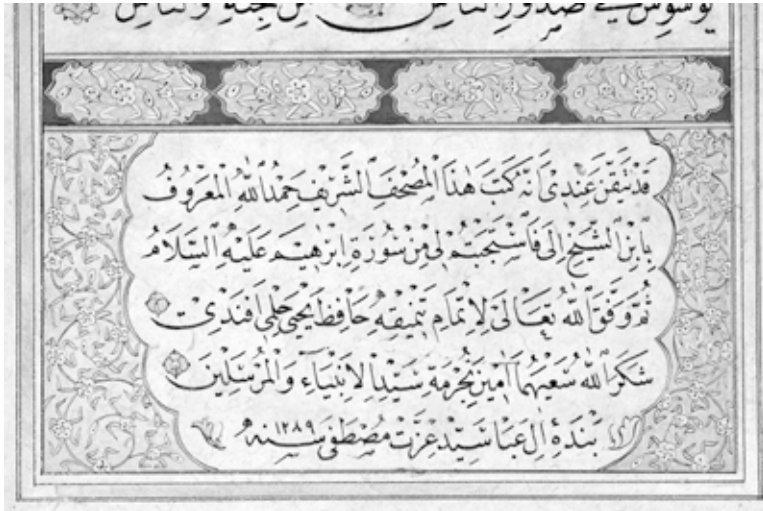 يوسوس في صدور الناس من الجنة والناس
قد تيقن عندي انه كتب هذا المصحف الشريف حمد الله المعروف
بابن الشيخ الى فاستجبتم لي من سورة ابرهيم عليه السلام
ثم وفق الله تعالى لاتمام تنميقه حافظ يحيى حلمى افندى
شكر الله سعيهما امين بحرمة سيد الانبياء والمرسلين
بنده آل عبا سيد عزت مصطفى سنه ١٢٨٩